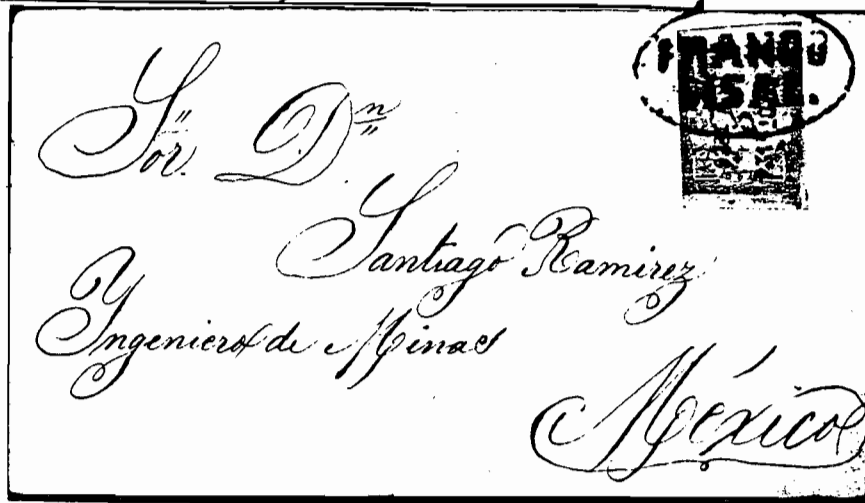 FRANCO
Sor. Dn
Santiago Ramirez
Yngeniero de Minas
México